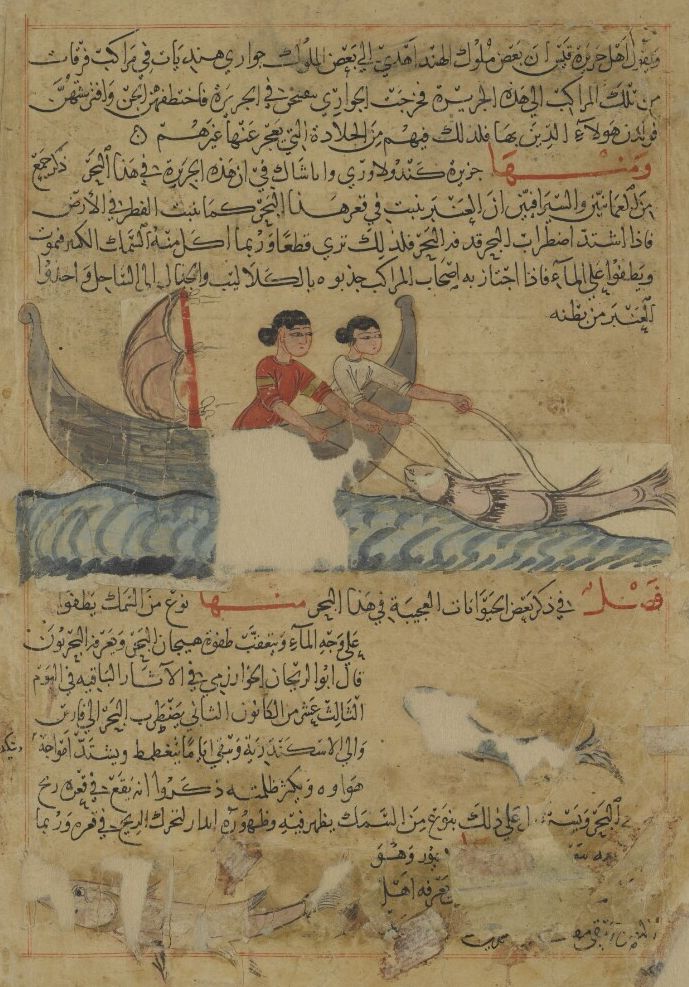 ويقول اهل جزيرة قيس ان بعض ملوك الهند اهدي الي بعض الملوك جواري هنديات في مراكب فرفات
من تلك المراكب الي هذه الجزيرة فخرجت الجواري يتفسحن في الجزيرة فاختطفهن الجن وافترشهن
فولدن هولاء الذين بها فلذلك فيهم من الجلادة التي يعجز عنها غيرهم
ومنها جزيرة كندولاوري في ان هذه الجزيرة في هذا البحر ذكر جمع
من العمانيين والسيرافيين ان العنبر ينبت في قعر هذا البحر كما ينبت الفطر في الأرض
فاذا اشتد اضطراب البحر قذفه البحر فلذلك تري قطعا وربما اكل منه السمك الكبير فيموت
ويطفوا علي الماء فاذا اجتاز به اصحاب المراكب جذبوه بالكلاليب والحبال الي الساحل واخذوا
العنبر من بطنه
فصل في ذكر بعض الحيوانات العجيبة في هذا البحر منها نوع من السمك يطفوا
علي وجه الماء ويتعقب طفوه هيجان البحر ويعرفه البحريون
قال ابوا لريحان الخوارزمي في الآثار الباقيه في اليوم
الثالث عشر من الكانون الثاني يضطرب البحر الي فارس
والي الاسكندرية وسفي اياما يتغطمط ويشتد امواجه
هواوه ويكثر ظلمته ذكروا انه يقع في قعره ريح
البحر علي ذلك بنوع من السمك يظهر فيه وظهوره انذار لتحرك الريح في قعره وربما
وهو
يعرفه اهل